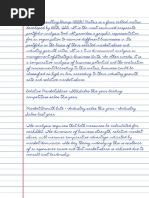 portfolio analysis tool. It provides a graphic representation
for an organization to examine different businesses in its
portfolio on the basis of their related market share and
industry growth rates. It is a comparative
analysis of business potential and the evaluation
of environment. According to this matrix, business could be
classified as high or low according to their industry growth
rate and relative market share.
Relative Market Share = SBU Sales this year leading
competitors sales this year.
Market Growth Rate = Industry sales this year - Industry
Sales last year.
The analysis requires that both measures be calculated for
each SBU. The dimension of business strength, relative market
share, will measure comparative advantage indicated by
market dominance. The key theory underlying this is existence
of an experience curve and that market share is achieved due to
overall cost leadership.